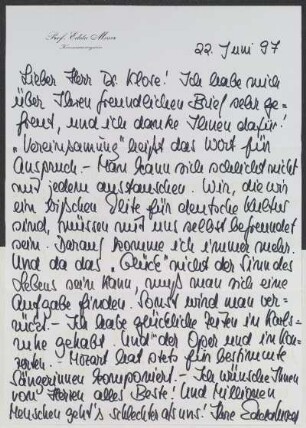 Prof. Edda Moser
Kammersängerin
22. Juni 97
Lieber Herr Dr. Klose! Ich habe mich
über Ihren freundlichen Brief sehr ge-
freut, und ich danke Ihnen dafür!
"Vereinsamung" heißt das Wort für
Anspruch. - Man kann sich schlicht nicht
mit jedem austauschen. Wir, die wir
ein bißchen Elite für deutsche Kultur
sind, müssen mit uns selbst befreundet
sein. Darauf komme ich immer mehr.
Und da das "Glück" nicht der Sinn des
Lebens sein kann, muß man sich eine
Aufgabe finden. Sonst wird man ver-
rückt. - Ich habe glückliche Zeiten in Karls-
ruhe gehabt. Und der Oper und in Kon-
zerten. - Mozart hat stets für bestimmte
Sängerinnen komponiert. - Ich wünsche Ihnen
von Herzen alles Beste! Und Millionen
Menschen geht's schlechter als uns! Ihre Edda Moser